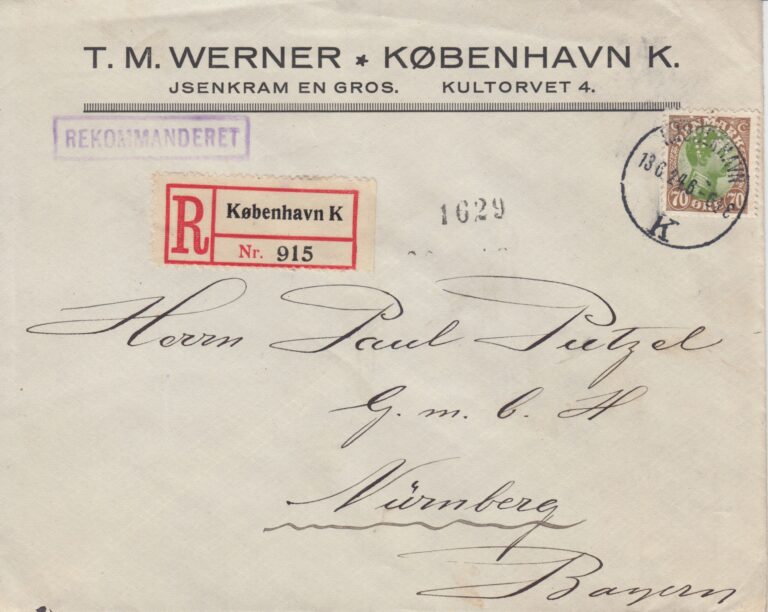 T. M. WERNER ★ KØBENHAVN K.
JSENKRAM EN GROS. KULTORVET 4.
REKOMMANDERET
R
København K
Nr. 915
1629
DANMARK
70 ØRE 70
K
Herrn Paul Putzel
G. m. b. H
Nürnberg
Bayern